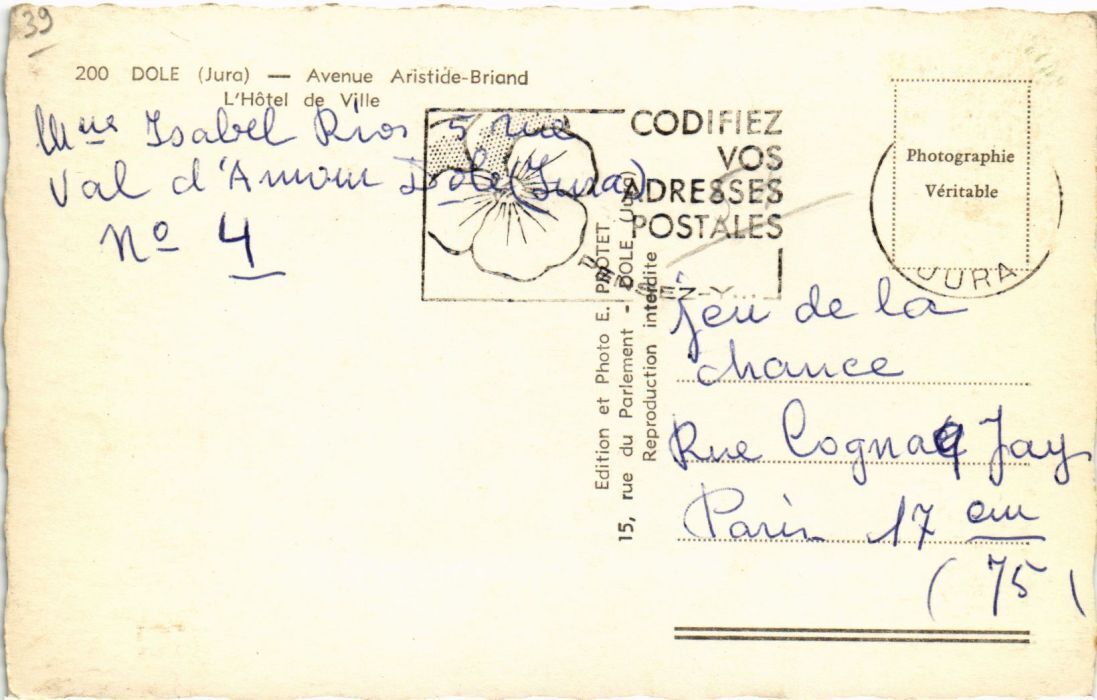 39
200 DOLE (Jura) — Avenue Aristide-Briand
L'Hôtel de Ville
Mme Isabel Rios 5 rue
Val d'Amour Dole (Jura)
N° 4
CODIFIEZ
VOS
ADRESSES
POSTALES
PENSEZ-Y...
Photographie
Véritable
JURA
Edition et Photo E. PROTET
15, rue du Parlement - DOLE (Jura)
Reproduction interdite
Jeu de la
chance
Rue Cognaq Jay
Paris 17 em
(75)